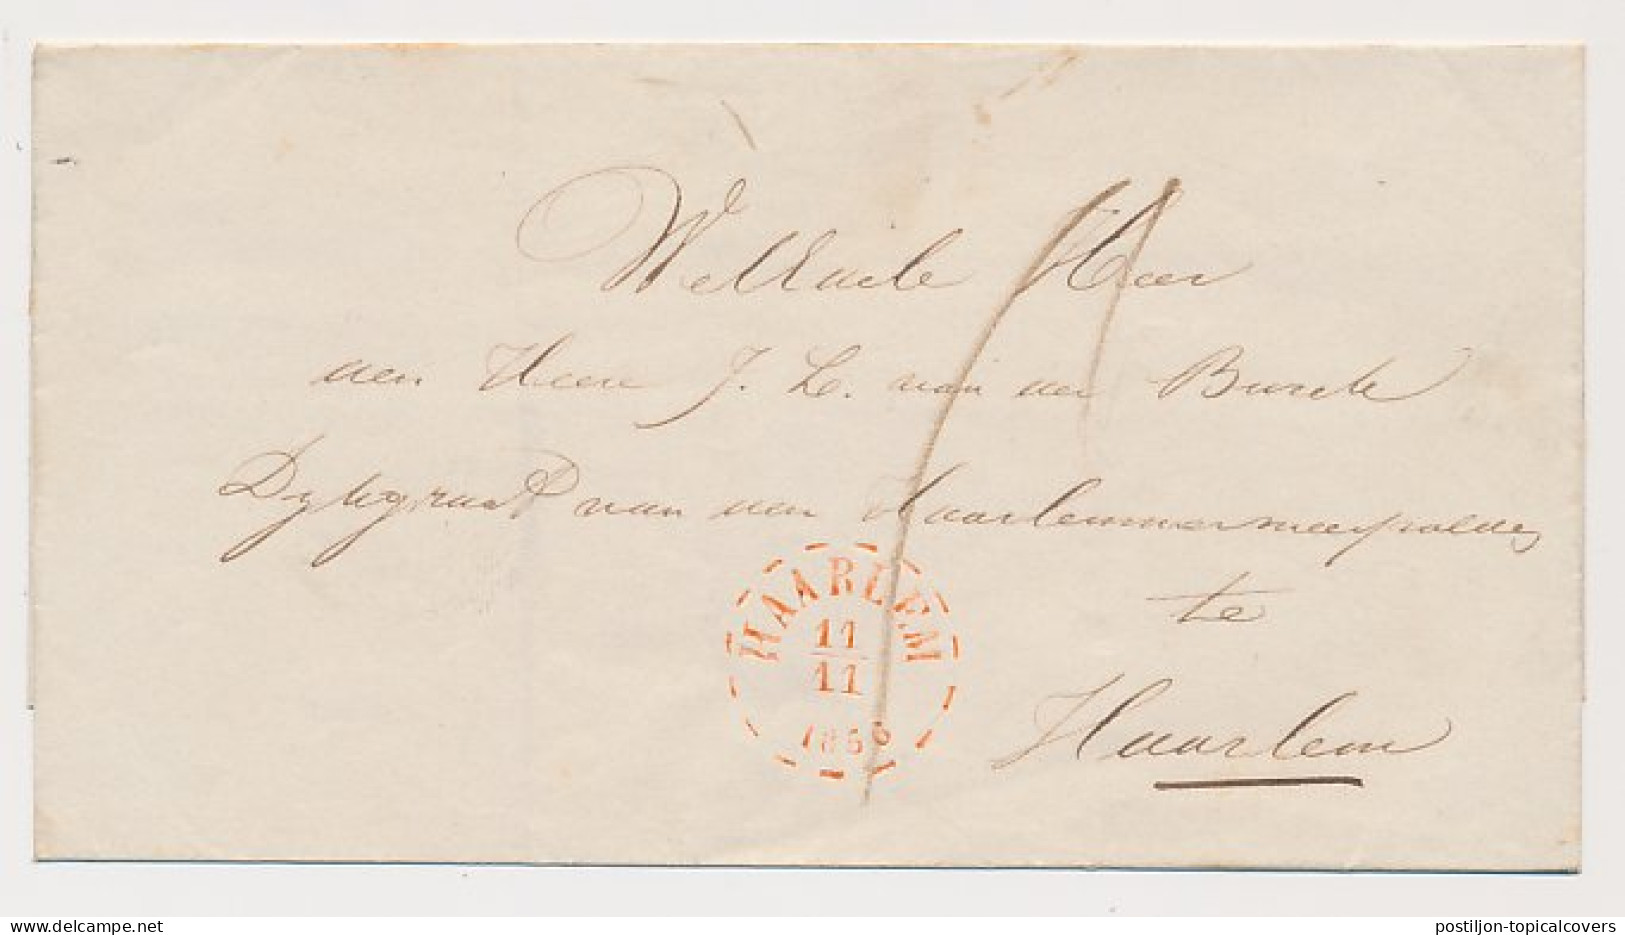 WelEdele Heer
den Heere J. L. van der Burch
Dykgraaf van den Haarlemmermeerpolder
te
Haarlem
HAARLEM
11
11
1856
postiljon-topicalcovers